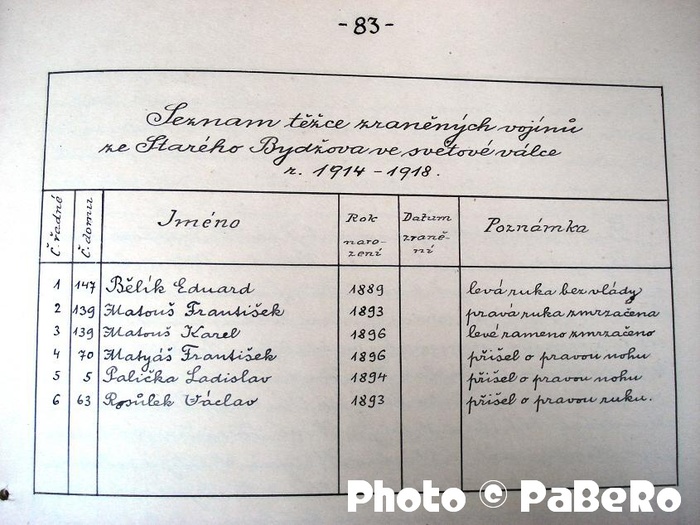 -83-
Seznam těžce zraněných vojínů
ze Starého Bydžova ve světové válce
r. 1914-1918.
Č. řadné Č. domu Jméno Rok narození Datum zranění Poznámka
1 147 Bělík Eduard 1889 levá ruka bez vlády
2 139 Matouš František 1893 pravá ruka zmrzačena
3 139 Matouš Karel 1896 levé rameno zmrzačeno
4 70 Matyáš František 1896 přišel o pravou nohu
5 5 Palička Ladislav 1894 přišel o pravou nohu
6 63 Rosůlek Václav 1893 přišel o pravou ruku.
Photo © PaBeRo